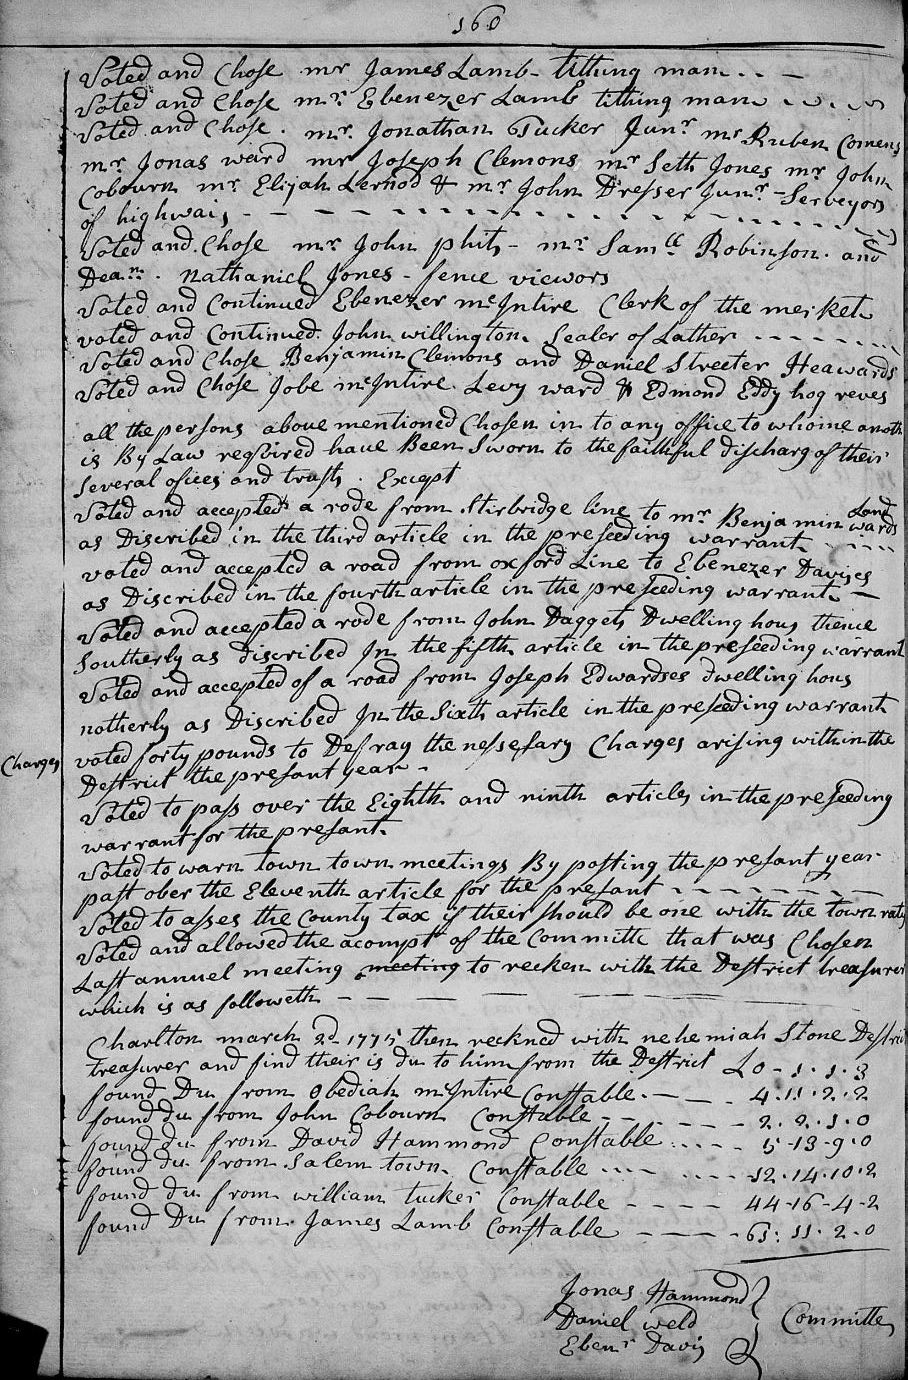 160
Voted and Chose mr James Lamb - tithing man
Voted and Chose mr Ebenezer Lamb tithing man
Voted and Chose. mr Jonathan Tucker Junr mr Ruben Comens
mr Jonas ward mr Joseph Clemons mr Seth Jones mr John
Cobourn mr Elijah Lernod & mr John Dresser Junr - Serveyors
of highwais
Voted and Chose mr John phits - mr Samll Robinson and
Dean. Nathaniel Jones - fence viewors
Voted and Continued Ebenezer mcIntire Clerk of the merket
voted and Continued John willington Sealer of Lather
Voted and Chose Benjamin Clemons and Daniel Streeter Heawards
Voted and Chose Jobe mcIntire Levy ward & Edmond Eddy hog reves
all the persons above mentioned Chosen in to any office to whome an oath
is By Law reqsired have Been Sworn to the faithful discharg of their
several ofices and trusts. Except
Voted and accepted a rode from Stirbridge line to mr Benjamin wards Land
as Discribed in the third article in the preseeding warrant
voted and accepted a road from oxford Line to Ebenezer Davises
as Discribed in the fourth article in the preseeding warrant
Voted and accepted a rode from John Daggets Dwelling hous thence
Southerly as discribed In the fifth article in the preseeding warrant
Voted and accepted of a road from Joseph Edwardses dwelling hous
notherly as Discribed In the Sixth article in the preseeding warrant
Charges voted forty pounds to Defray the nessesary Charges arising within the
Destrict the present year -
Voted to pass over the Eighth and ninth articles in the preseeding
warrant for the presant.
Voted to warn town town meetings By posting the presant year
past ober the Eleventh article for the presant
Voted to asses the County tax if their should be one with the town rate
Voted and allowed the acompt of the Committe that was Chosen
Last annuel meeting meeting to recken with the Destrict treasurer
which is as followeth
Charlton march 2d 1775 then reckned with nehemiah Stone Destrict
treasurer and find their is du to him from the Destrict £0 - 1 . 1 . 3
found Du from Obediah mcIntire Constable 4 . 11 . 2 . 2
found du from John Cobourn Constable 2 . 2 . 1 . 0
found du from David Hammond Constable 5 - 13 - 9 . 0
found du from Salem town Constable 12 . 14 . 10 . 2
found du from william tucker Constable 44 - 16 - 4 - 2
found Du from James Lamb Constable 61 : 11 . 2 . 0
Jonas Hammond
Daniel weld Committe
Ebenr Davis